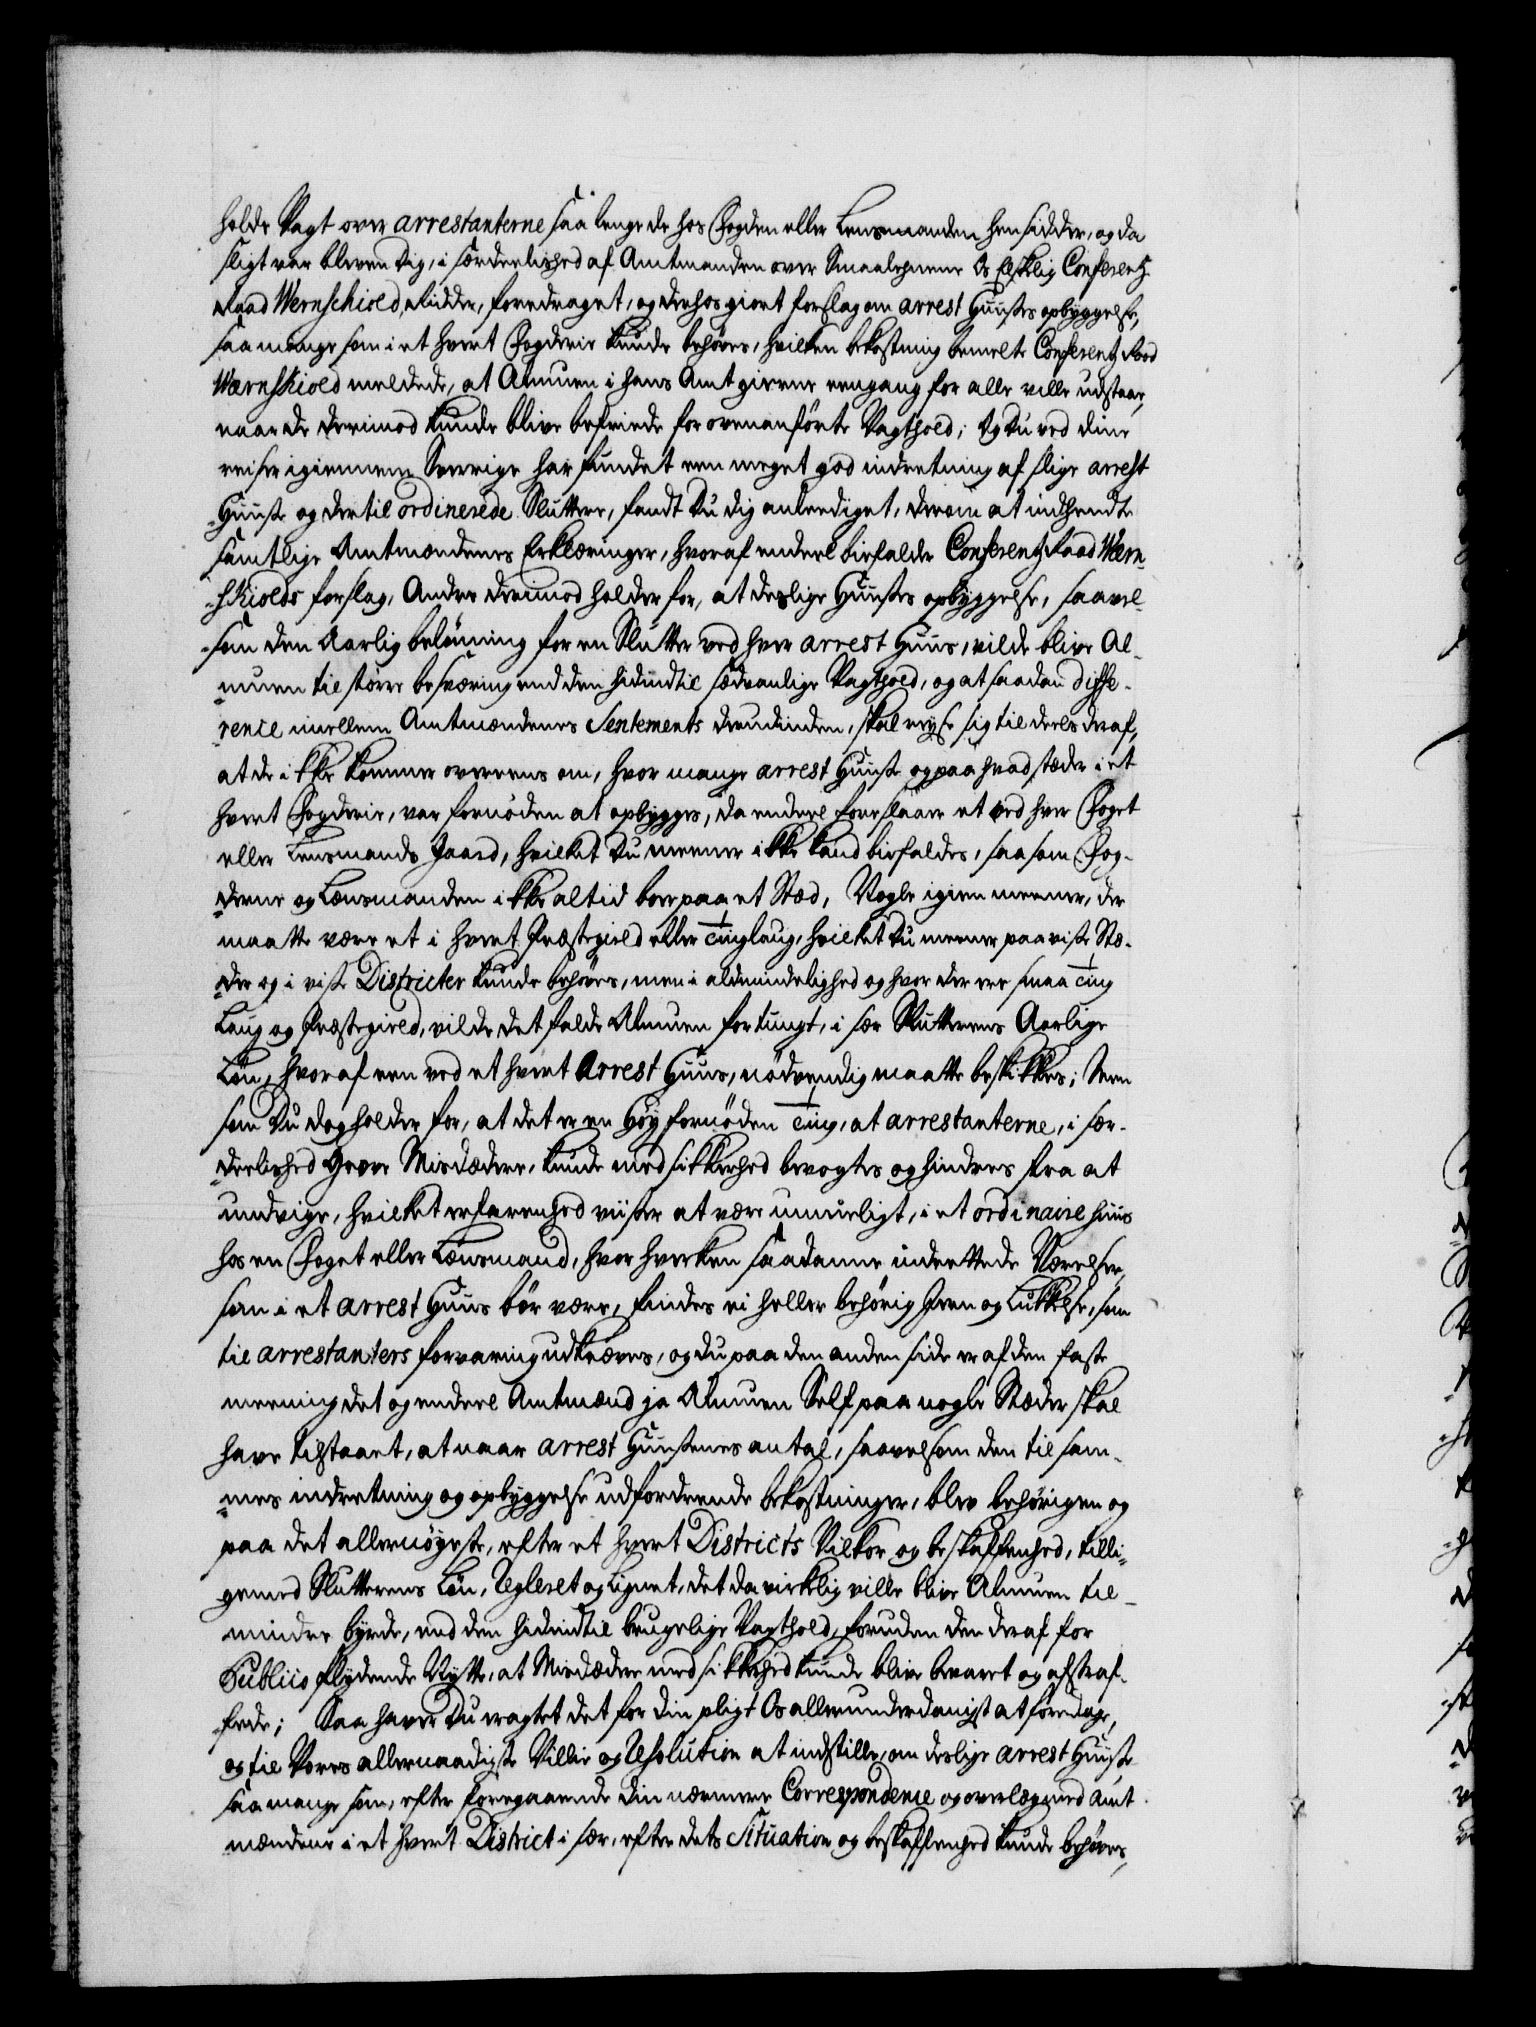 holde Vagt over arrestanterne saa lenge de hos Fogden eller Lensmanden hensidder, og da
sligt var bleven Dig, i særdeelished af Amtmanden over Smaalehnene Os Elskelig Conferentz
Raad Wernschiold, Ridder, foredraget, og derhos giort forslag om arrest Huuses opbyggelse,
saa mange som i et hvert Fogderie kunde behøves, hvilken bekostning bemelte Conferentz Raad
Wærnskiold meldede, at Almuen i hans Amt gierne eengang for alle ville udstaae,
naar de derimod kunde blive befriede for ovenanførte Vagthold; Og Du ved dine
reiser igiennem Sverrige har fundet een meget god indretning af slige arrest
Huuse og dertil ordinerede Sluttere, fandt Du dig anleediget, derom at indhente
samtlige Amtmændenes Erklæringer, hvoraf endeel biefalder Conferentz Raad Wærn-
skiolds forslag, Andre derimod holder for, at deslige Huuses opbyggelse, saavel-
som den Aarlig belønning for en Slutter ved hver arrest Huus, vilde blive Al-
muen til større besværing end den hidindtil sædvanlige Vagthold, og at saadan diffe-
rence imellem Amtmændenes Sentements derudinden, skal reyse sig til deels deraf,
at de ikke kommer overeens om, hvor mange arrest Huuse og paa hvad stæder i et
hvert Fogderie, var fornøden at opbygges, da endeel foreslaaer et ved hver Foget
eller Lensmands Gaard, hvilket Du meener ikke kand biefaldes, saasom Fog-
derne og Lænsmanden ikke altid boer paa et Stæd, Nogle igien meener, der
maatte være et i hvert Præstegield eller Tinglaug, hvilket Du meener paa visse Stæ-
der og i visse Districter kunde behøves, men i aldmindelighed og hvor der ere smaa Ting
Laug og Præstegield, vilde det falde Almuen for tungt, i sær Slutterens Aarlige
Løn, hvoraf een ved et hvert Arrest Huus, nødvendig maatte beskikkes; Men
som Du dog holder for, at det er en Høy fornøden Ting, at arrestanterne, i sær-
deelished Grove Misdædere, kunde med sikkerhed bevogtes og hindres fra at
undvige, hvilket erfarenhed viiser at være umueligt, i et ordinaire huus
hos en Foget eller Lænsmand, hvor hverken saadanne indrettede Værelser,
som i et arrest Huus bør være, findes ei heller behørig Jern og Lukkelse, som
til arrestanters forvaring udkræves, og du paa den anden side er af den faste
meening det og endeel Amtmænd ja Almuen Self paa nogle Stæder skal
have tilstaaet, at naar arrest Huusenes antal, saavelsom den til sam-
mes indretning og opbyggelse udfordrende bekostninger, blev behørigen og
paa det allernøyeste, efter et hvert Districts Vilkor og beskaffenhed, tilli-
gemed Slutterens Løn, Regleret og Lignet, det da virkelig ville blive Almuen til
mindre byrde, end den hidindtil brugelige Vagthold, foruden den deraf for
Publico flydende Nytte, at Misdædere med sikkerhed kunde blive bevaret og afstraf-
fede; Saa haver Du eragtet det for din pligt Os allerunderdanigst at foredrage,
og til Vores allernaadigste Villie og Resolution at indstille, om deslige arrest Huuse
saa mange som, efter foregaaende din nærmere Correspondence og overlæg med Amt-
mændene i et hvert District i sær, efter dets Situation og beskaffenhed kunde behøves,